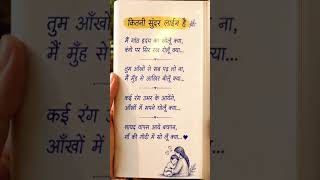 कितनी सुंदर लाईन है
मैं गांठ हृदय का खोलूँ क्या,
कंधे पर सिर रख रोलूँ क्या...
तुम आँखों से सब पढ़ लो ना,
मैं मुँह से आखिर बोलूँ क्या...
कई रंग उमर के आयेंगे,
आँखों में सपने घोलूँ क्या...
शायद वापस आये बचपन,
माँ की गोदी में सो लूँ क्या...
तुम आँखों
मैं मुँह से
कई रंग उ
आँखों में स